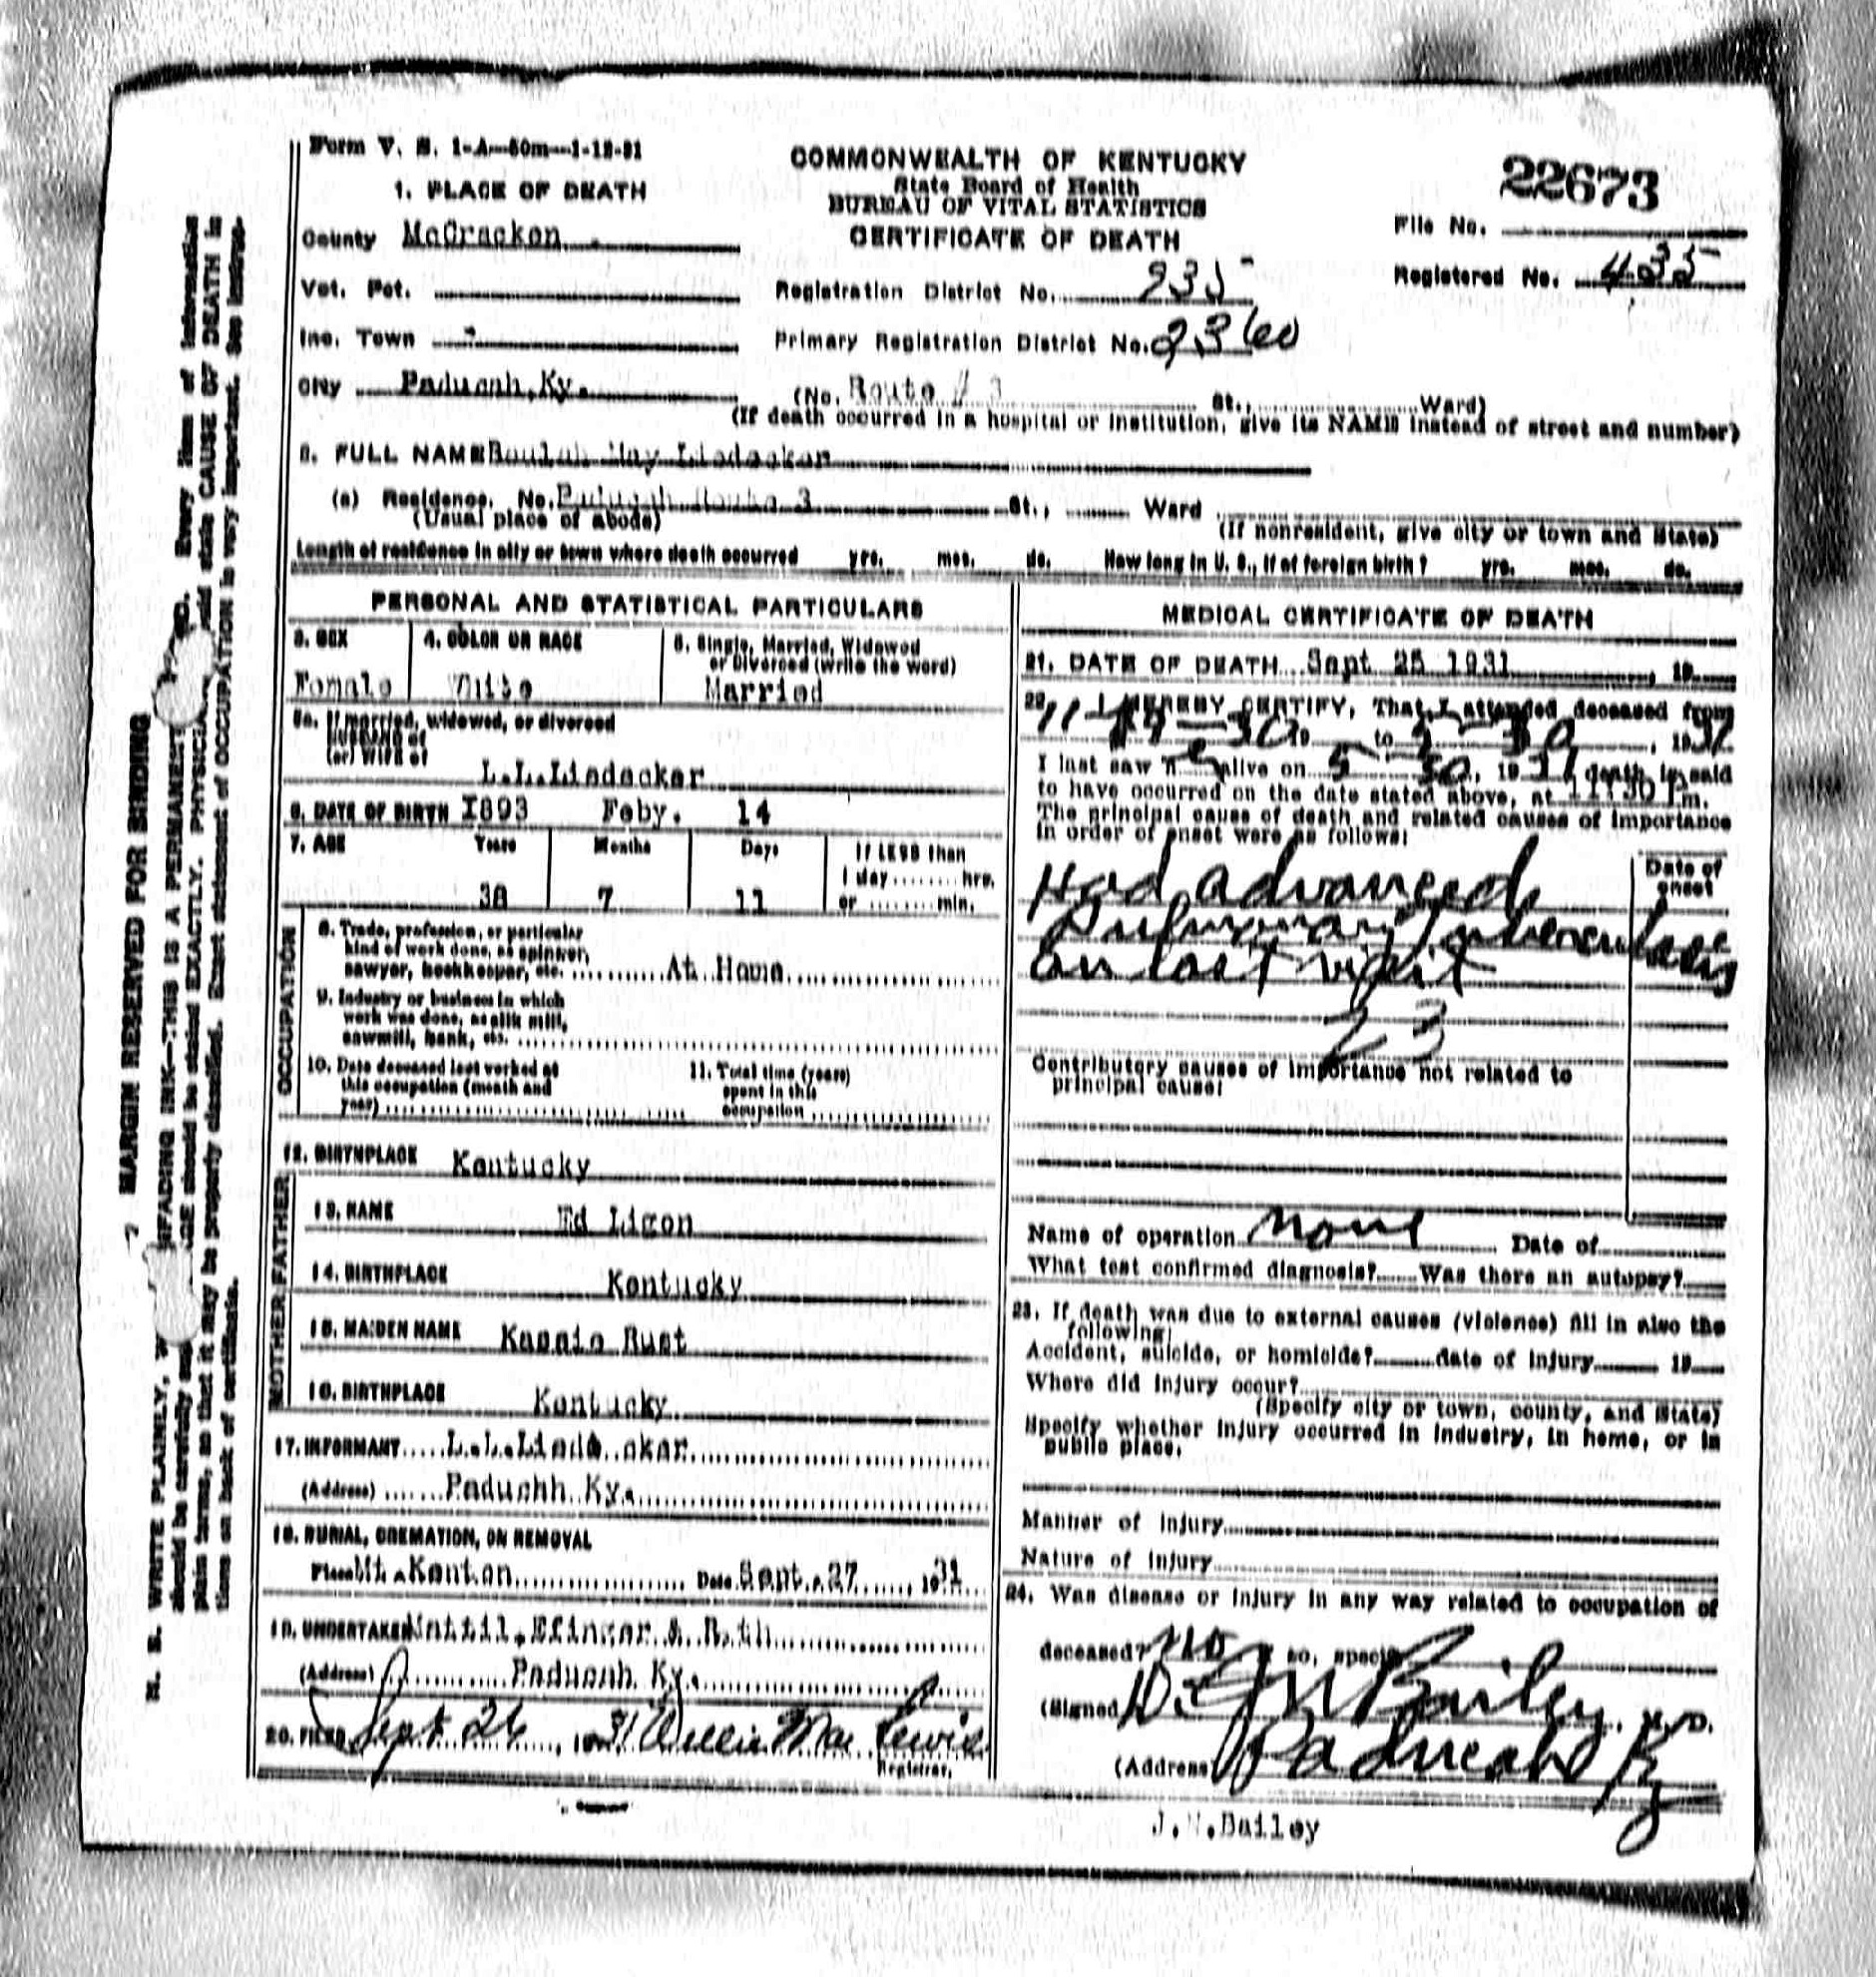 Form V. S. 1-A—50m—1-12-31
COMMONWEALTH OF KENTUCKY
State Board of Health
BUREAU OF VITAL STATISTICS
CERTIFICATE OF DEATH
22673
File No.
Registered No. 435
1. PLACE OF DEATH
County McCracken
Vot. Pct.
Registration District No. 935
Inc. Town
Primary Registration District No. 2360
City Paducah, Ky.
(No. Route # 3 St., Ward)
(If death occurred in a hospital or institution, give its NAME instead of street and number)
2. FULL NAME Beulah May Liedecker
(a) Residence. No. Paducah Route 3 St., Ward
(Usual place of abode)
(If nonresident, give city or town and State)
Length of residence in city or town where death occurred yrs. mos. ds. How long in U. S., if of foreign birth? yrs. mos. ds.
PERSONAL AND STATISTICAL PARTICULARS
3. SEX
4. COLOR OR RACE
5. Single, Married, Widowed
or Divorced (write the word)
Female White Married
5a. If married, widowed, or divorced
HUSBAND of
(or) WIFE of
L.L.Liedecker
6. DATE OF BIRTH I893 Feby. 14
7. AGE Years Months Days If LESS than
1 day ........ hrs.
38 7 11 or ........ min.
OCCUPATION
8. Trade, profession, or particular
kind of work done, as spinner,
sawyer, bookkeeper, etc. At Home
9. Industry or business in which
work was done, as silk mill,
sawmill, bank, etc.
10. Date deceased last worked at
this occupation (month and
year)
11. Total time (years)
spent in this
occupation
12. BIRTHPLACE Kentucky
FATHER
13. NAME Ed Ligon
14. BIRTHPLACE Kentucky
MOTHER
15. MAIDEN NAME Rust
16. BIRTHPLACE Kentucky
17. INFORMANT L.L.
(Address) Paduchh Ky.
18. BURIAL, CREMATION, OR REMOVAL
Place Mt. Kenton Date Sept. 27, 1931
19. UNDERTAKER Nattil, Efinger & Roth
(Address) Paducah Ky.
20. FILED Sept 26, 1931 Willie Mae Lewis
Registrar.
MEDICAL CERTIFICATE OF DEATH
21. DATE OF DEATH Sept 25 1931, 19
22. I HEREBY CERTIFY, That I attended deceased from
to , 1931
I last saw alive on 5 30, 1931, death is said
to have occurred on the date stated above, at 11:30 P.m.
The principal cause of death and related causes of importance
in order of onset were as follows:
Date of
onset
Had advanced
Pulmonary Tuberculosis
on last visit
23
Contributory causes of importance not related to
principal cause:
Name of operation None Date of
What test confirmed diagnosis? Was there an autopsy?
23. If death was due to external causes (violence) fill in also the
following:
Accident, suicide, or homicide? date of injury 19
Where did injury occur?
(Specify city or town, county, and State)
Specify whether injury occurred in industry, in home, or in
public place.
Manner of injury
Nature of injury
24. Was disease or injury in any way related to occupation of
deceased? No If so, specify
(Signed) Bailey, M. D.
(Address) Paducah Ky
J.N.Bailey
MARGIN RESERVED FOR BINDING
N. B. WRITE PLAINLY, UNFADING INK—THIS IS A PERMANENT Every item of information
should be carefully AGE should be stated EXACTLY. PHYSICIA state CAUSE OF DEATH in
plain terms, so that it may be properly classified. Exact statement of OCCUPATION is very important. See instruc-
tions on back of certificate.